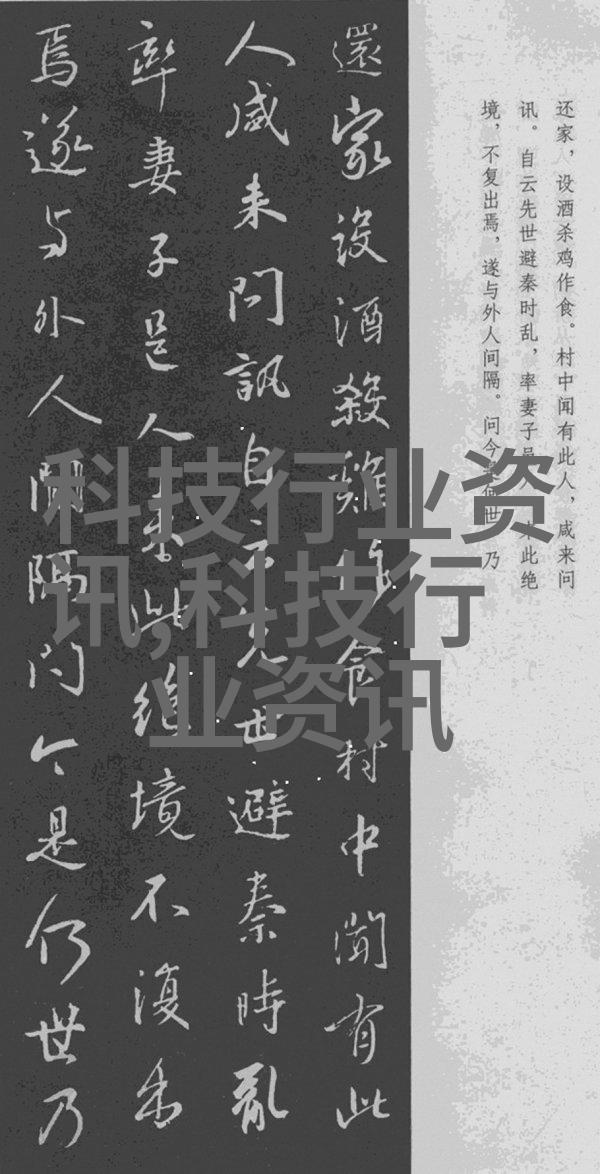 还家，设酒杀鸡作食。村中闻有此人，咸来问
讯。自云先世避秦时乱，率妻子邑来此绝
境，不复出焉，遂与外人间隔。问今是何世乃
還家設酒殺雞作食村中聞有此
人咸来問訊自云先世避秦時亂
率妻子邑人来此絶境不復出
焉遂与外人間隔问今是何世乃
科技行业资
讯,科技行
业资讯